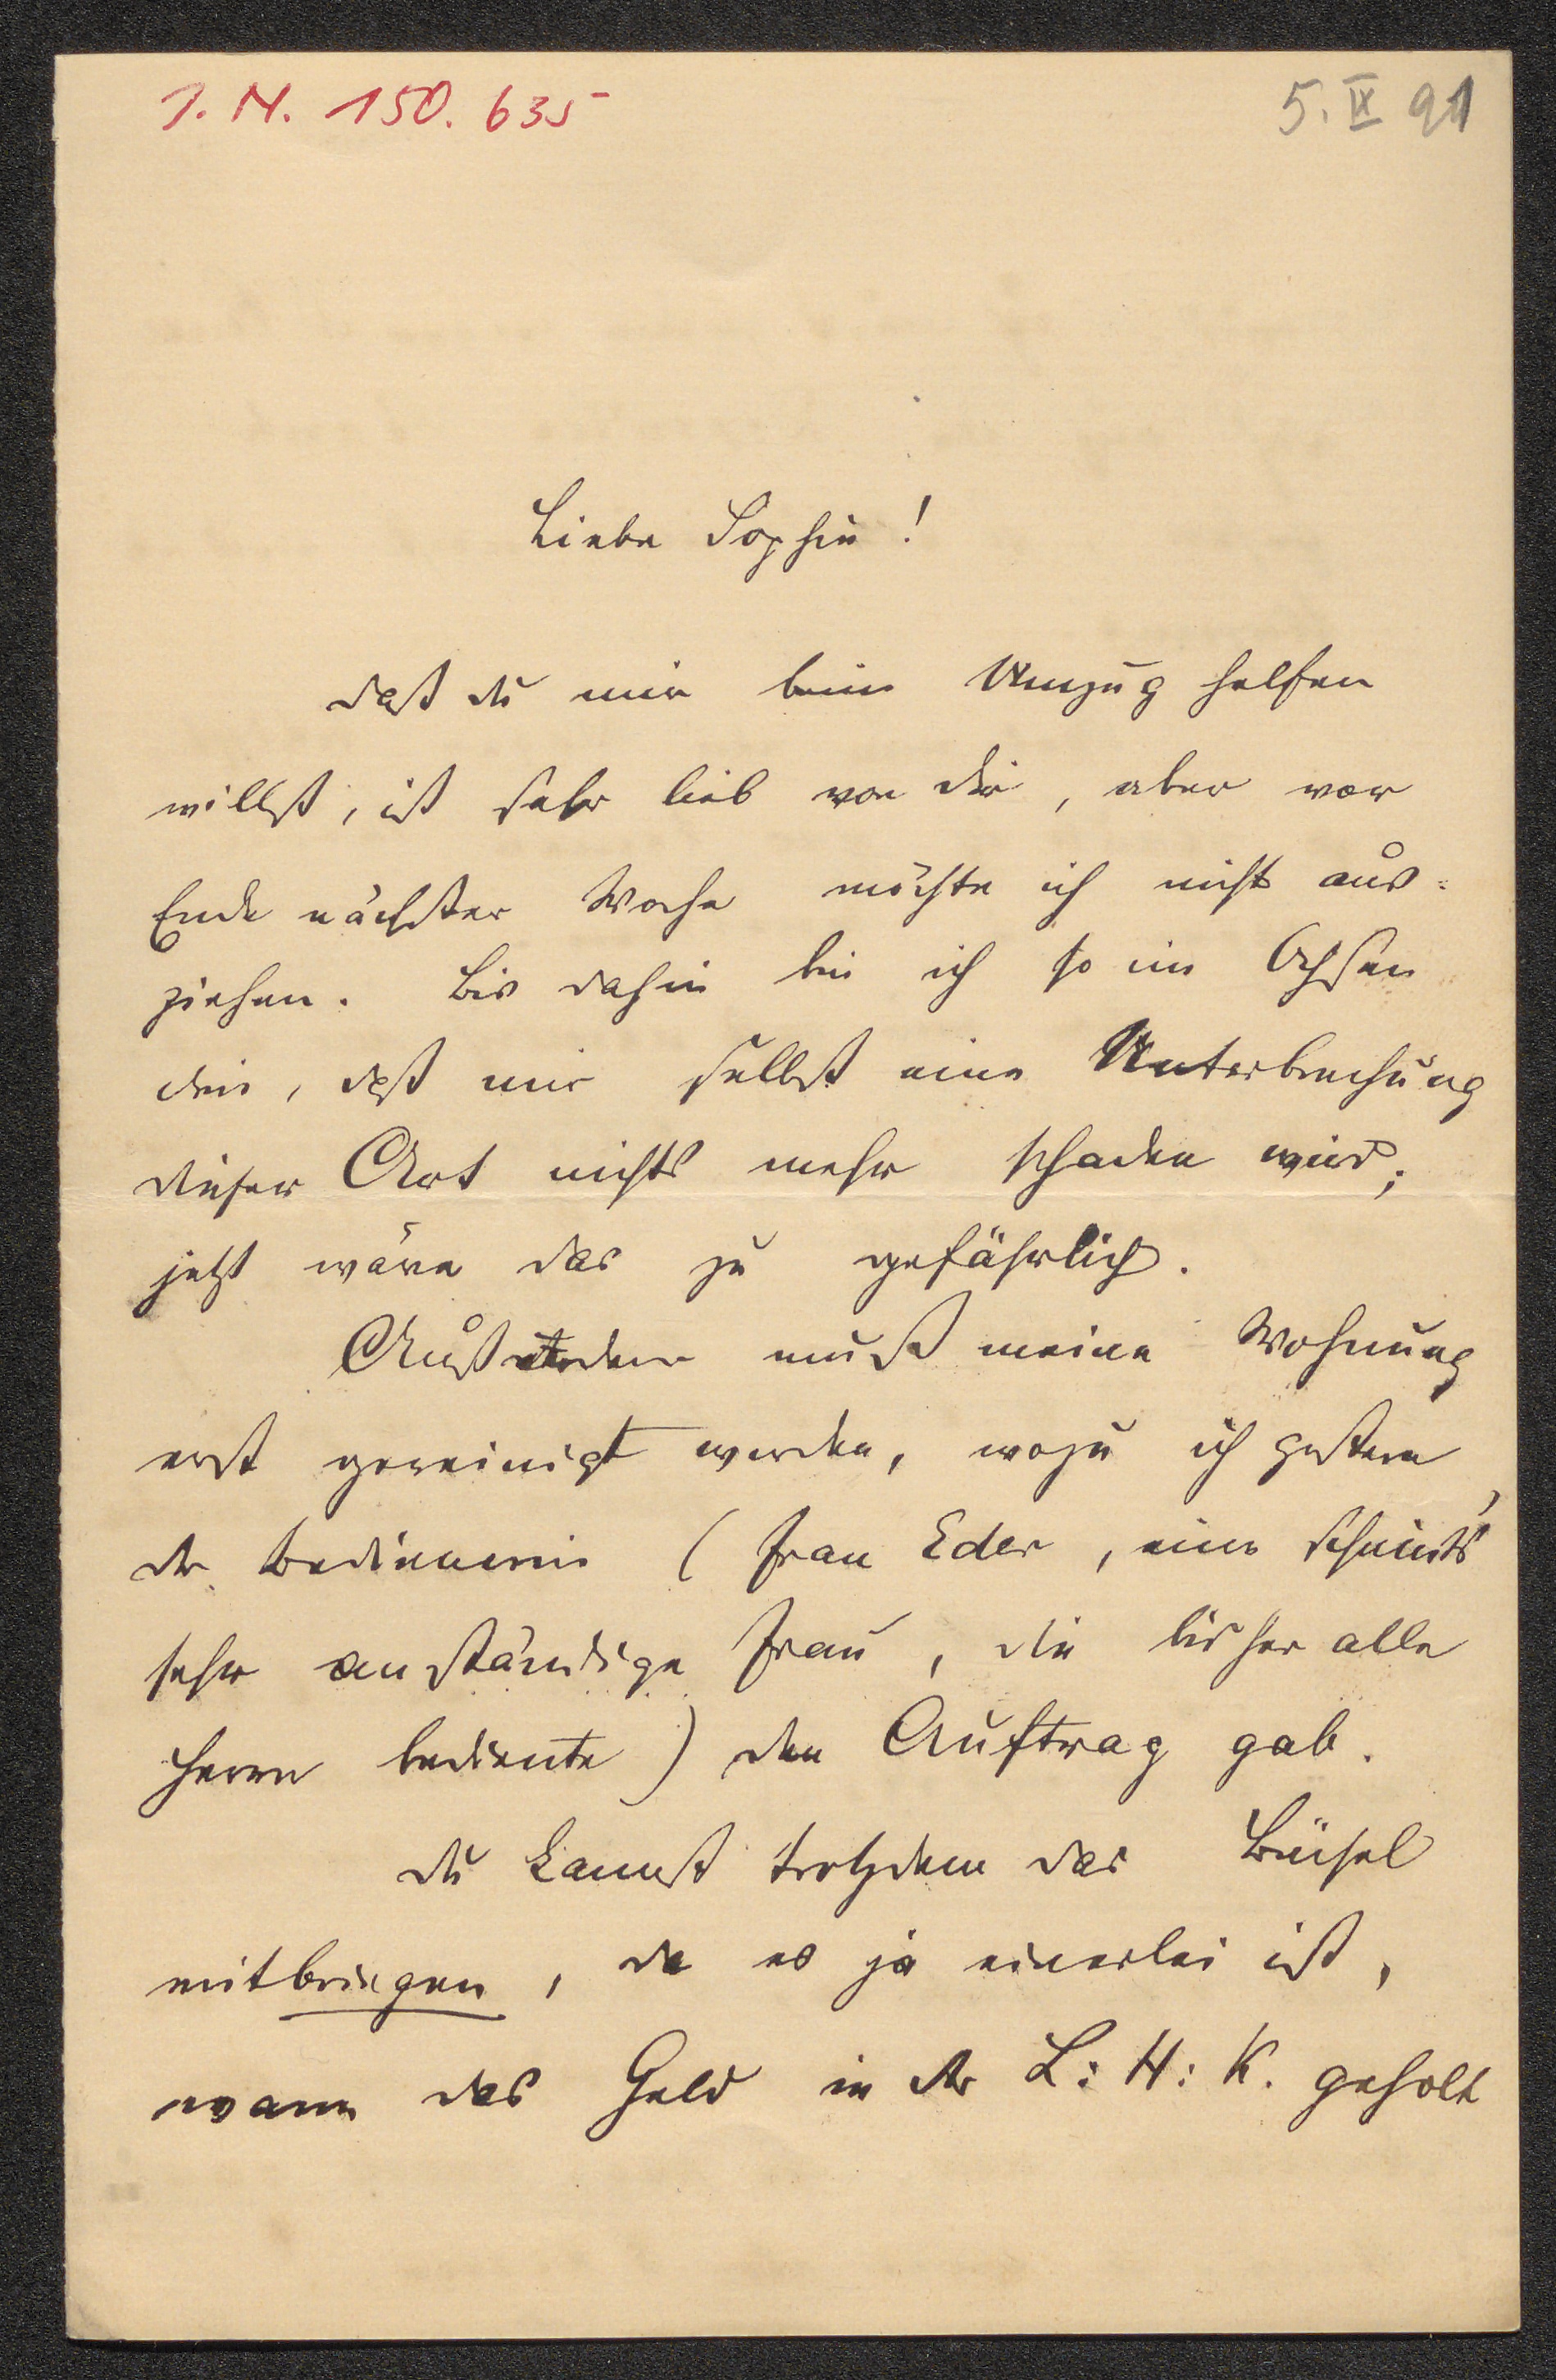 I. N. 150. 635
5. IX 91
Liebe Sophie!
daß du mir beim Umzug helfen
willst, ist sehr lieb von dir, aber vor
Ende nächster Woche möchte ich nicht aus-
ziehen. Bis dahin bin ich so im Ochsen
drin, daß mir selbst eine Unterbrechung
dieser Art nichts mehr schaden wird;
jetzt wäre das zu gefährlich.
Außerdem muß meine Wohnung
erst gereinigt werden, wozu ich gestern
der Bedienerin (Frau Eder, eine scheint's
sehr anständige Frau, die bisher alle
Herrn bediente) den Auftrag gab.
du kannst trotzdem das Büchel
mitbringen, da es ja einerlei ist,
wann das Geld in der L: H: K. geholt